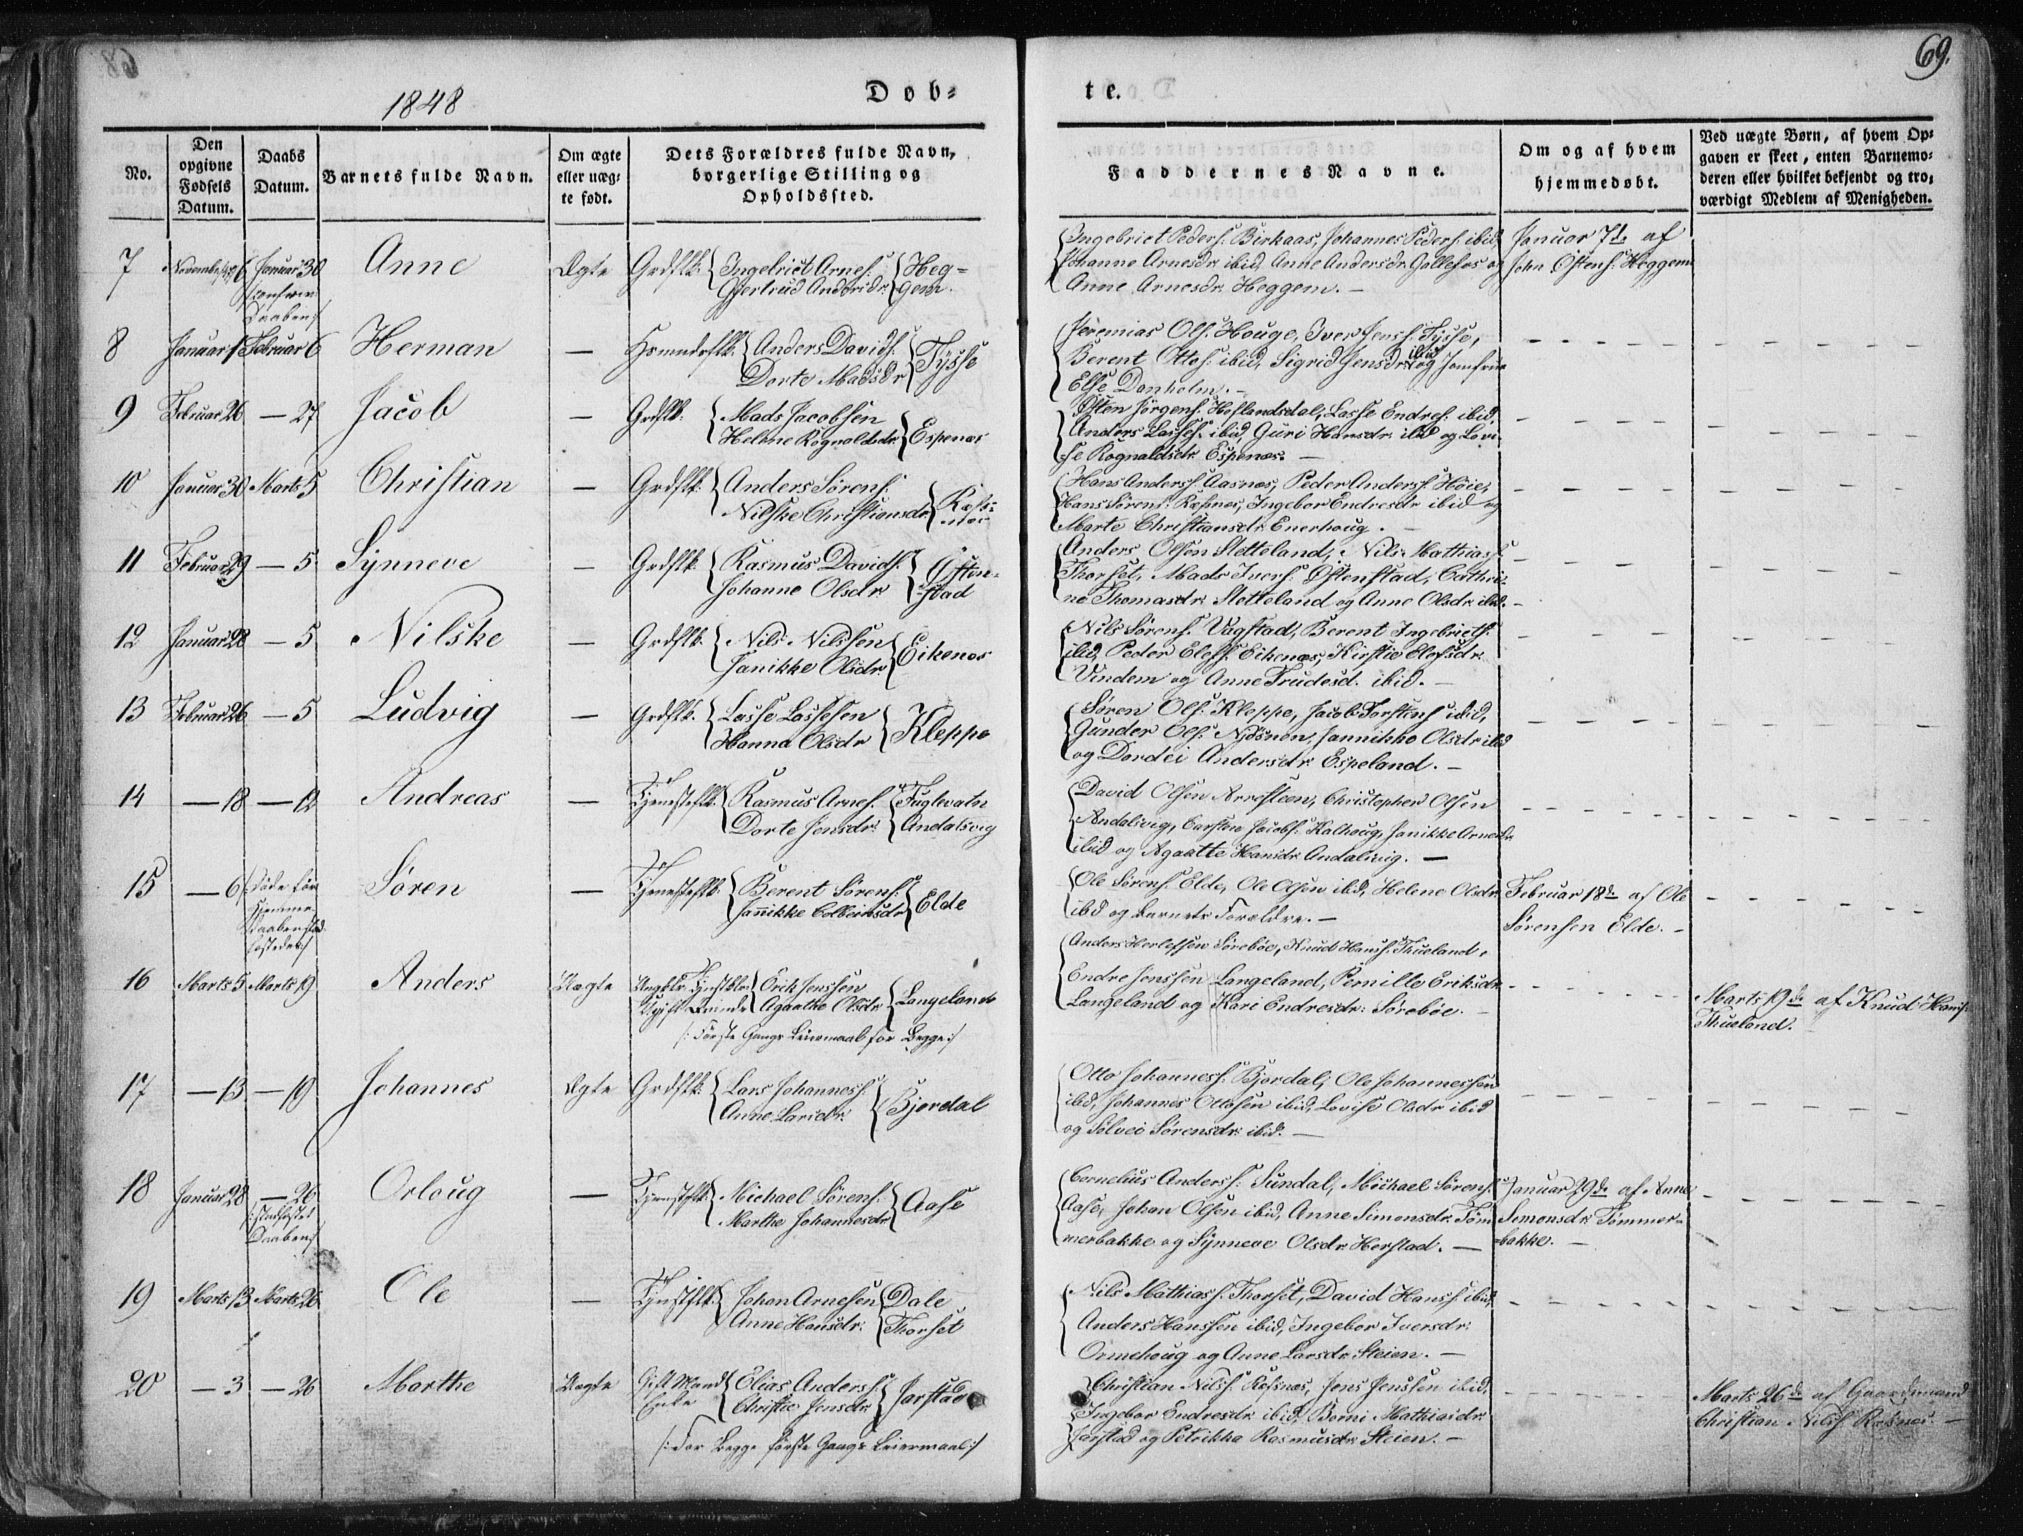 1848
Døb-
te.
69.
No.
Den opgivne Fødsels Datum.
Daabs Datum.
Barnets fulde Navn.
Om ægte eller uægte født.
Dets Forældres fulde Navn, borgerlige Stilling og Opholdssted.
Faddernes Navne.
Om og af hvem hjemmedøbt.
Ved uægte Børn, af hvem Opgaven er skeet, enten Barnemoderen eller hvilket bekjendt og troværdigt Medlem af Menigheden.
7 Januar 30 Anne Ægte Grdflk: Ingebrict Arnes: Gjertrud Andersdr: Heggem.
Ingebrict Peders: Birkaas, Johannes Peders: ibid,
Johanne Arnesdr: ibid, Anne Andersdr: og
Anne Arnesdr: Heggem. —
Januar 7de af
John Østens: Heggem
8 Januar 1 Februar 6 Herman — Anders Davids: Dorte Madsdr: Tysse
Jeremias Ols: Houge, Iver Jens: Tysse,
Berent Ottos: ibid, Sigrid Jensdr: ibid og Jomfrue
Else Danholm. —
9 Februar 26 — 27 Jacob — Grdflk: Mads Jacobsen Helene Rognaldsdr: Espenæs
Østen Jørgens: Heslandsdal, Lasse Endres: ibid,
Anders Lasses: ibid, Guri Hansdr: ibid og Lovi-
se Rognaldsdr: Espenæs. —
10 Januar 30 Marts 5 Christian — Grdflk: Anders Sørens: Nilske Christiansdr: Ræsnæs
Hans Anders: Aasnæs, Peder Anders: Høie,
Hans Sørens: Ræsnæs, Ingebor Endresdr: ibid og
Marte Christiansdr: Enerhoug.
11 Februar 29 — 5 Synneve — Grdflk: Rasmus Davids: Johanne Olsdr: Østen-stad
Anders Olsen Stetteland, Nils Mathias:
Thorset, Mads Ivers: Østenstad, Cathri-
ne Thomasdr: Stetteland og Anne Olsdr: ibid. —
12 Januar 28 — 5 Nilske — Grdflk: Nils Nilssen Janikke Olsdr: Eikenæs
Nils Sørens: Vagstad, Berent Ingebricts:
ibid, Peder Elefs: Eikenæs, Kirstie Elefsdr:
Vindem og Anne Trudesd. ibid. —
13 Februar 26 — 5 Ludvig — Grdflk: Lasse Lassesen Hanna Olsdr: Kleppe
Søren Ols: Kleppe, Jacob Torstens: ibid,
Gunder Ols: Njøsnen, Jannikke Olsdr: ibid
og Dordei Andersdr: Espeland. —
14 — 18 — 12 Andreas — Tjenesteflk: Rasmus Arnes: Dorte Jensdr: Fuglevatn Andalsvig
David Olsen Arnesteen, Christopher Olsen
Andalsvig, Carsten Jacobs: Kalhoug, Janikke Arnesdr:
ibid og Agaatte Hansdr: Andalsvig. —
15 — 6 Søren — Tjenesteflk: Berent Sørens: Jannikke Colbeinsdr: Elde
Ole Sørens: Elde, Ole Olsen ibid, Helene Olsdr:
ibid og Barnets Forældre. —
Februar 18de af Ole
Sørensen Elde. —
16 Marts 5 Marts 19 Anders Uægte Erik Jenssen Agaathe Olsdr: Langeland
/: Første Gangs Leiermaal for Begge :/
Anders Herlefssen Sørebøe, Knud Hans: Thueland,
Endre Jenssen Langeland, Pernille Eriksdr:
Langeland og Kari Endresdr: Sørebøe. —
Marts 19de af Knud Hans:
Thueland. —
17 — 13 — 19 Johannes Ægte Grdflk: Lars Johannes: Anne Larsdr: Bjordal
Otto Johannes: Bjordal, Ole Johannessen
ibid, Johannes Ottosen ibid, Lovise Olsdr: ibid
og Sølvei Sørensdr: ibid. —
18 Januar 28 — 26 Orloug — Tjenstflk: Michael Sørens: Marthe Johannesdr: Aase
Cornelius Anders: Sundal, Michael Sørens:
Aase, Johan Olsen ibid, Anne Simonsdr: Tøm-
merbakke og Synneve Olsdr: Herstad. —
Januar 29de af Anne
Simonsdr: Tømmer-
bakke. —
19 Marts 13 Marts 26 Ole — Tjenstflk: Johan Arnesen Anne Hansdr: Dale Thorset
Nils Mathias: Thorset, David Hans: ibid,
Anders Hanssen ibid, Ingebor Iversdr:
Ormehoug og Anne Larsdr: Steien. —
20 — 3 — 26 Marthe Uægte Gift Mand Enke Elias Anders: Christie Jensdr: Jarstad
/: For Begge første Gangs Leiermaal :/
Christian Nils: Ræsnæs, Jens Jenssen ibid,
Ingebor Endresdr: ibid, Berni Mathiasdr:
Jarstad og Petrikke Rasmusdr: Steien. —
Marts 26de af Gaardmand
Christian Nils: Ræsnæs. —